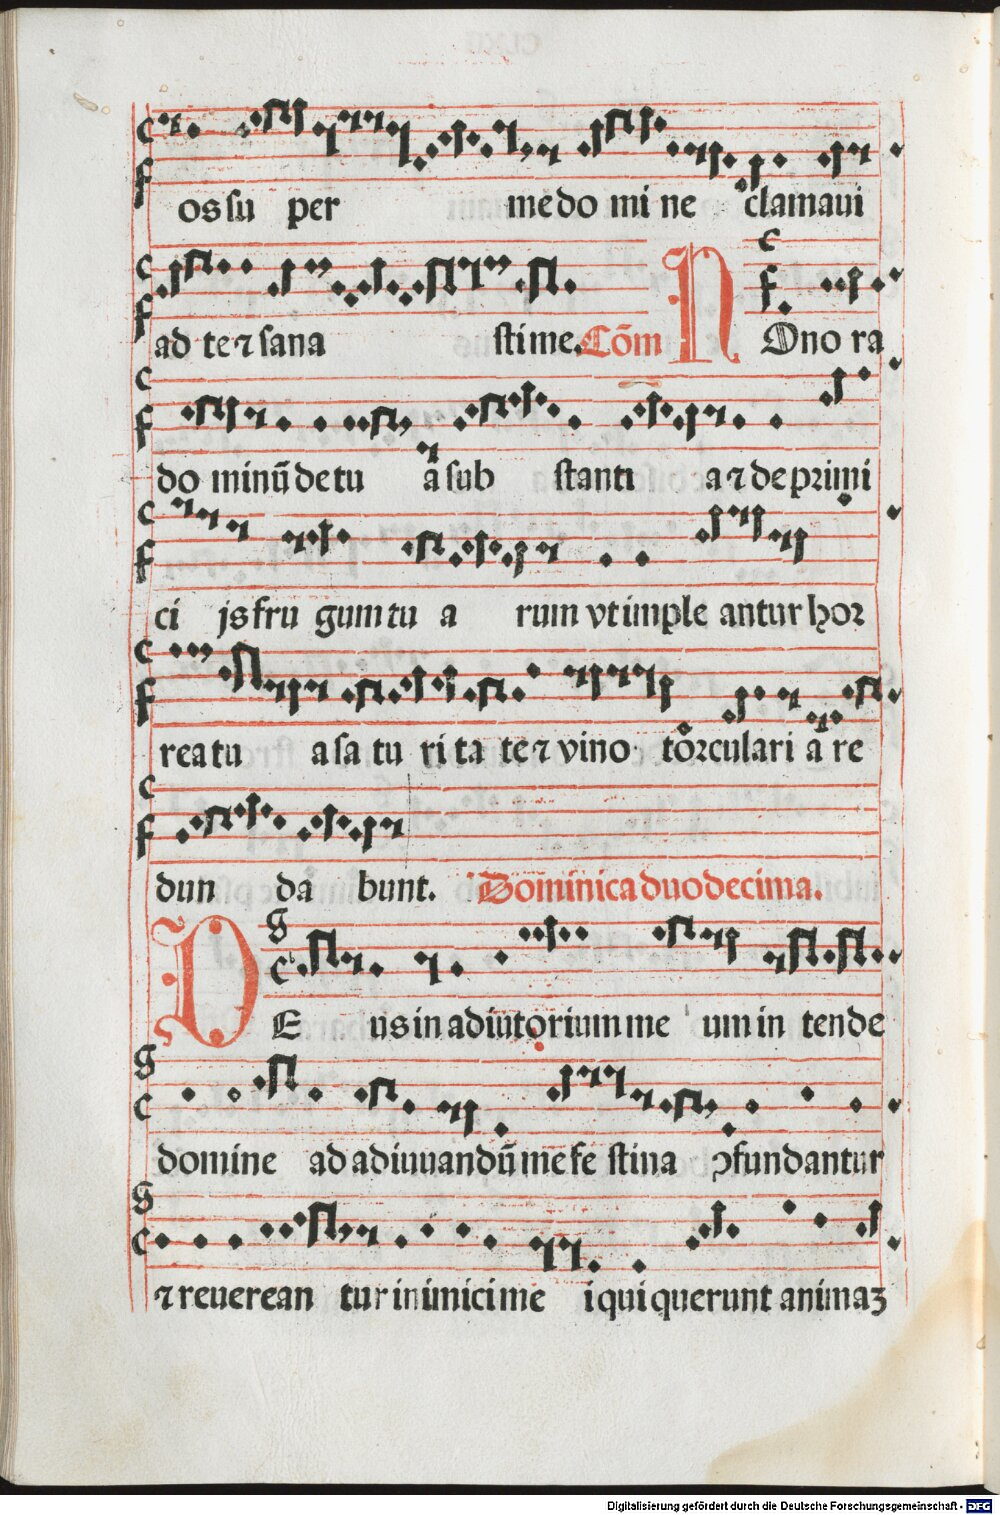 os su per me do mi ne clamaui
ad te ⁊ sana sti me. Cōm HOno ra
do minū de tu a sub stanti a ⁊ de primi
ci js fru gum tu a rum vt imple antur hor
rea tu a sa tu ri ta te ⁊ vino torculari a re
dun da bunt. Dominica duodecima.
DE us in adiutorium me um in tende
domine ad adiuuandū me fe stina ↄfundantur
⁊ reuerean tur inimici me i qui querunt animaꝫ
Digitalisierung gefördert durch die Deutsche Forschungsgemeinschaft - DFG